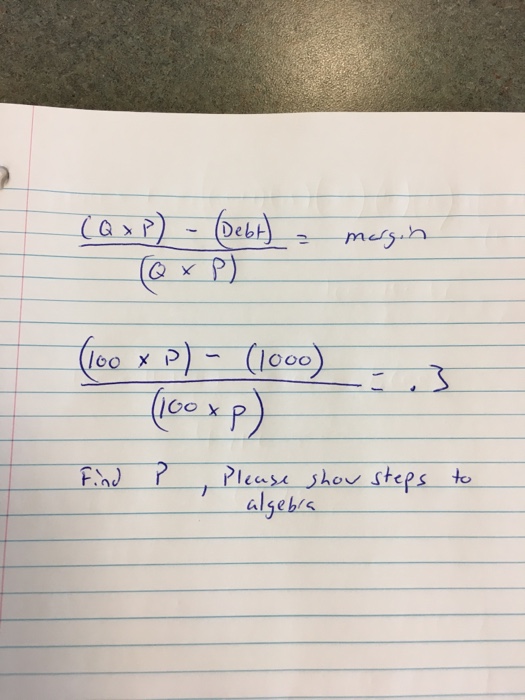 (Q x P) - (Debt) = margin
(Q x P)
(100 x P) - (1000) = .3
(100 x P)
Find P, Please show steps to
algebra